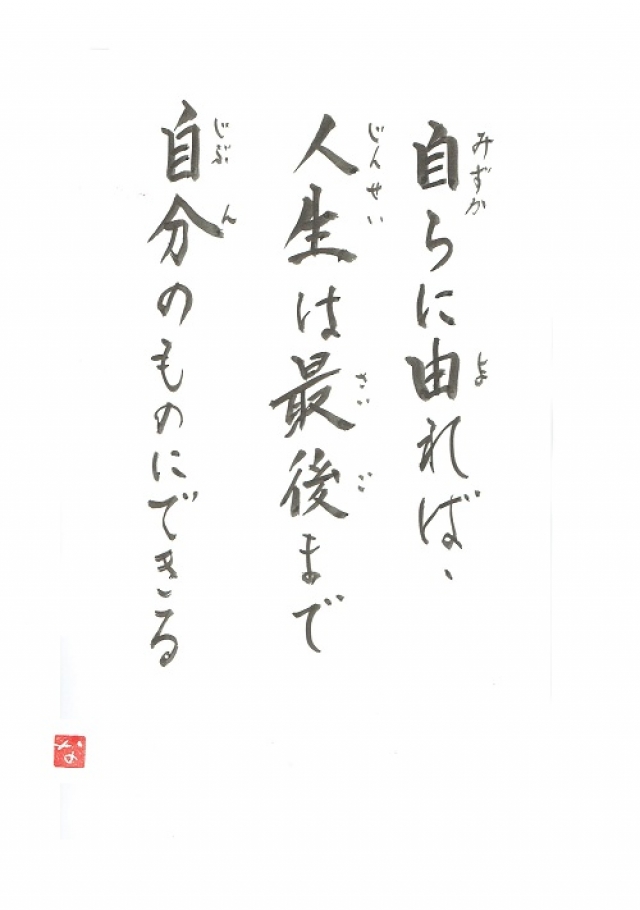 自らに由れば、
みずか
よ
人生は最後まで
じんせい
さいご
自分のものにできる
じぶん
な